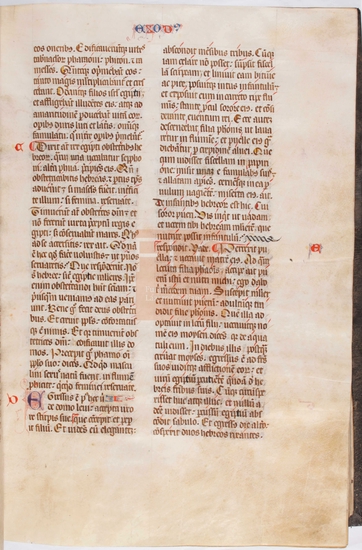 EXODus
eos oneribus. Edificaueruntq; urbes
messes. Quantoq; opprimebat eos:
tanto magis multiplicabantur et cres
cebant. Oderantq; filios isrl egiptii
et affligebant illudentes eis: atq; ad
amaritudinem perducebant uitam eor
operibus duris luti et lateris. omniq;
Dixit aut rex egipti obstetricib; he
breor. quar una uocabatur sepho
ra. alia phua. precipiens eis. Qn
obstetricabitis hebreas et ptus tempus
aduenerit si masculus fuerit. interfi
cite illum. si femina. reseruate.
Timuerunt aut obstetrices deum. et n
fecerunt iuxta preceptum regis e
gypti. sed conseruabant mares. Qib;
ad se accersitis. rex ait. Quidnam
est hoc qd facere uoluistis: ut pueros
seruaretis. Que responderunt. Non
sunt hebree sicut egiptie mulieres. Ipse
enim obstetricandi habent scientiam. et
priusquam ueniamus ad eas pari
unt. Bene ergo fecit deus obstetri
cib;. Et creuit pplus. confortatus
q; est nimis. Et quia timuerunt obste
trices deum: edificauit illis do
mos. Precepit g pharao omni
pplo suo: dicens. Quicqd mascu
lini sexus natum fuerit. in flumen
proicite: qcqd feminei reseruate.
Egressus est post hec uir
de domo leui: accepta uxo
re stirpis sue. que concepit et pepe
rit filium. Et uidens eum elegantem:
abscondit mensibus tribus. Cumq;
iam celare non posset: sumpsit fiscel
lam scirpeam: et liniuit eam bitumine
ac pice. posuitq; intus infantulum
et exposuit eum in carecto ripe flu
minis: stante procul sorore eius. et con
siderante euentum rei. Ecce autem
descendebat filia pharaonis ut lauare
tur in flumine: et puelle eius gra
diebantur per crepidinem aluei. Que
cum uidisset fiscellam in papiri
one: misit unam e famulabus suis.
et allatam aperiens. cernensq; in ea par
uulum uagientem: miserta eius ait.
De infantib; hebreor est hic. Cui
soror pueri. Vis inquit ut uadam.
et uocem tibi hebream mulierem: que
nutrire possit infantulum.
respondit. Vade. Perrexit puel
la: et uocauit matrem eius. Ad quam
locuta filia pharaonis. Accipe ait pue
rum istum et nutri michi: ego dabo
tibi mercedem tuam. Suscepit mulier
et nutriuit puerum: adultumq; tra
didit filie pharaonis. Quem illa ad
optauit in locum filii. uocauitq; no
men eius moysen dicens. quia de aqua
tuli eum. In diebus illis: postqm
creuerat moyses. egressus est ad fra
tres suos. uiditq; afflictionem eor: et
uirum egiptium percutientem quendam de he
breis fratribus suis. Cumq; circumspe
xisset huc atq; illuc. et nullum a
desse uidisset: percussum egiptium abs
condit sabulo. Et egressus die altero
conspexit duos hebreos rixantes.